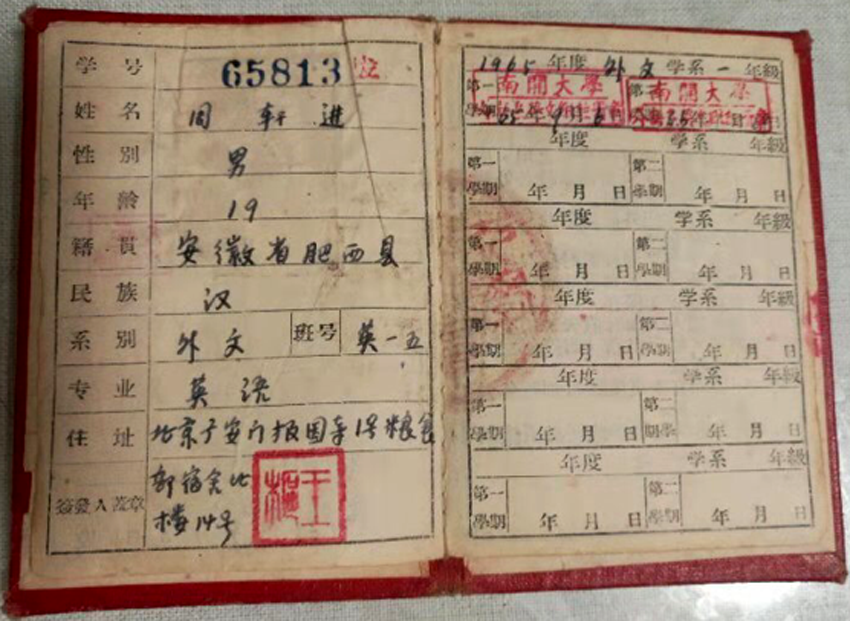 学号 65813 发
姓名 周轩进
性别 男
年龄 19
籍貫 安徽省肥西县
民族 汉
系别 外文 班号 英一五
专业 英语
住址 北京广安门报国寺1号粮食
部宿舍北
簽發人盖章 楼14号
1965年度 外文 学系 一 年级
第一 南開大學 第二 南開大學
65年9月6
年度 学系 年级
第一學期 年 月 日 第二學期 年 月 日
年度 学系 年级
第一學期 年 月 日 第二學期 年 月 日
年度 学系 年级
第一學期 年 月 日 第二學期 年 月 日
年度 学系 年级
第一學期 年 月 日 第二學期 年 月 日
年度 学系 年级
第一學期 年 月 日 第二學期 年 月 日